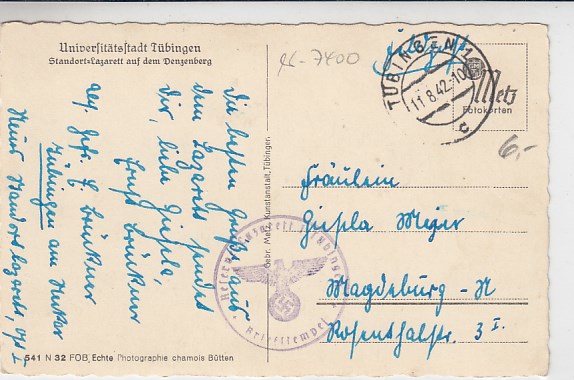 Universitätsstadt Tübingen
Standort-Lazarett auf dem Denzenberg
Die besten Grüße aus
dem Lazarett sendet
dir, liebe Gisela,
Ernst Brückner
Abs. Gefr. E. Brückner
Tübingen am Neckar
Standortlazarett,
541 N 32 FOB, Echte Photographie chamois Bütten
Gebr. Metz, Kunstanstalt, Tübingen.
7400
Feldpost
TÜBINGEN 1
11.8.42.-10
c
Metz
Fotokarten
6,-
Fräulein
Gisela Meyer
Magdeburg-N
Rosenthalstr. 3 I.
Reservelazarett Tübingen
Briefstempel